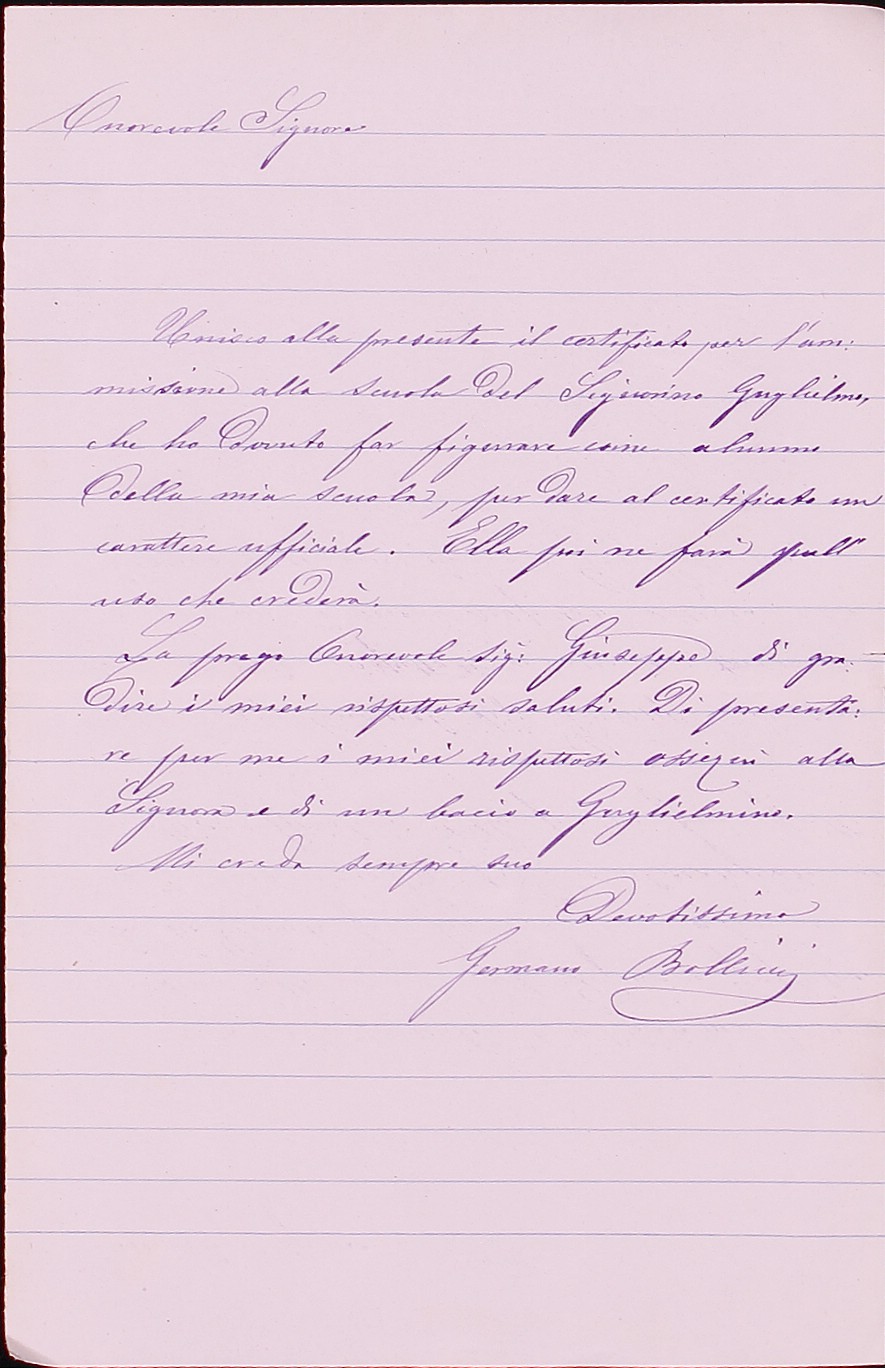 Onorevole Signore
Unisco alla presente il certificato per l'am:
missione alla scuola del Signorino Guglielmo,
che ho dovuto far figurare come alunno
della mia scuola, per dare al certificato un
carattere ufficiale. Ella poi ne farà quell'
uso che crederà.
La prego Onorevole Sig: Giuseppe di gra:
dire i miei rispettosi saluti. Di presenta:
re per me i miei rispettosi ossequi alla
Signora e di un bacio a Guglielmino.
Mi creda sempre suo
Devotissimo
Germano Bollini